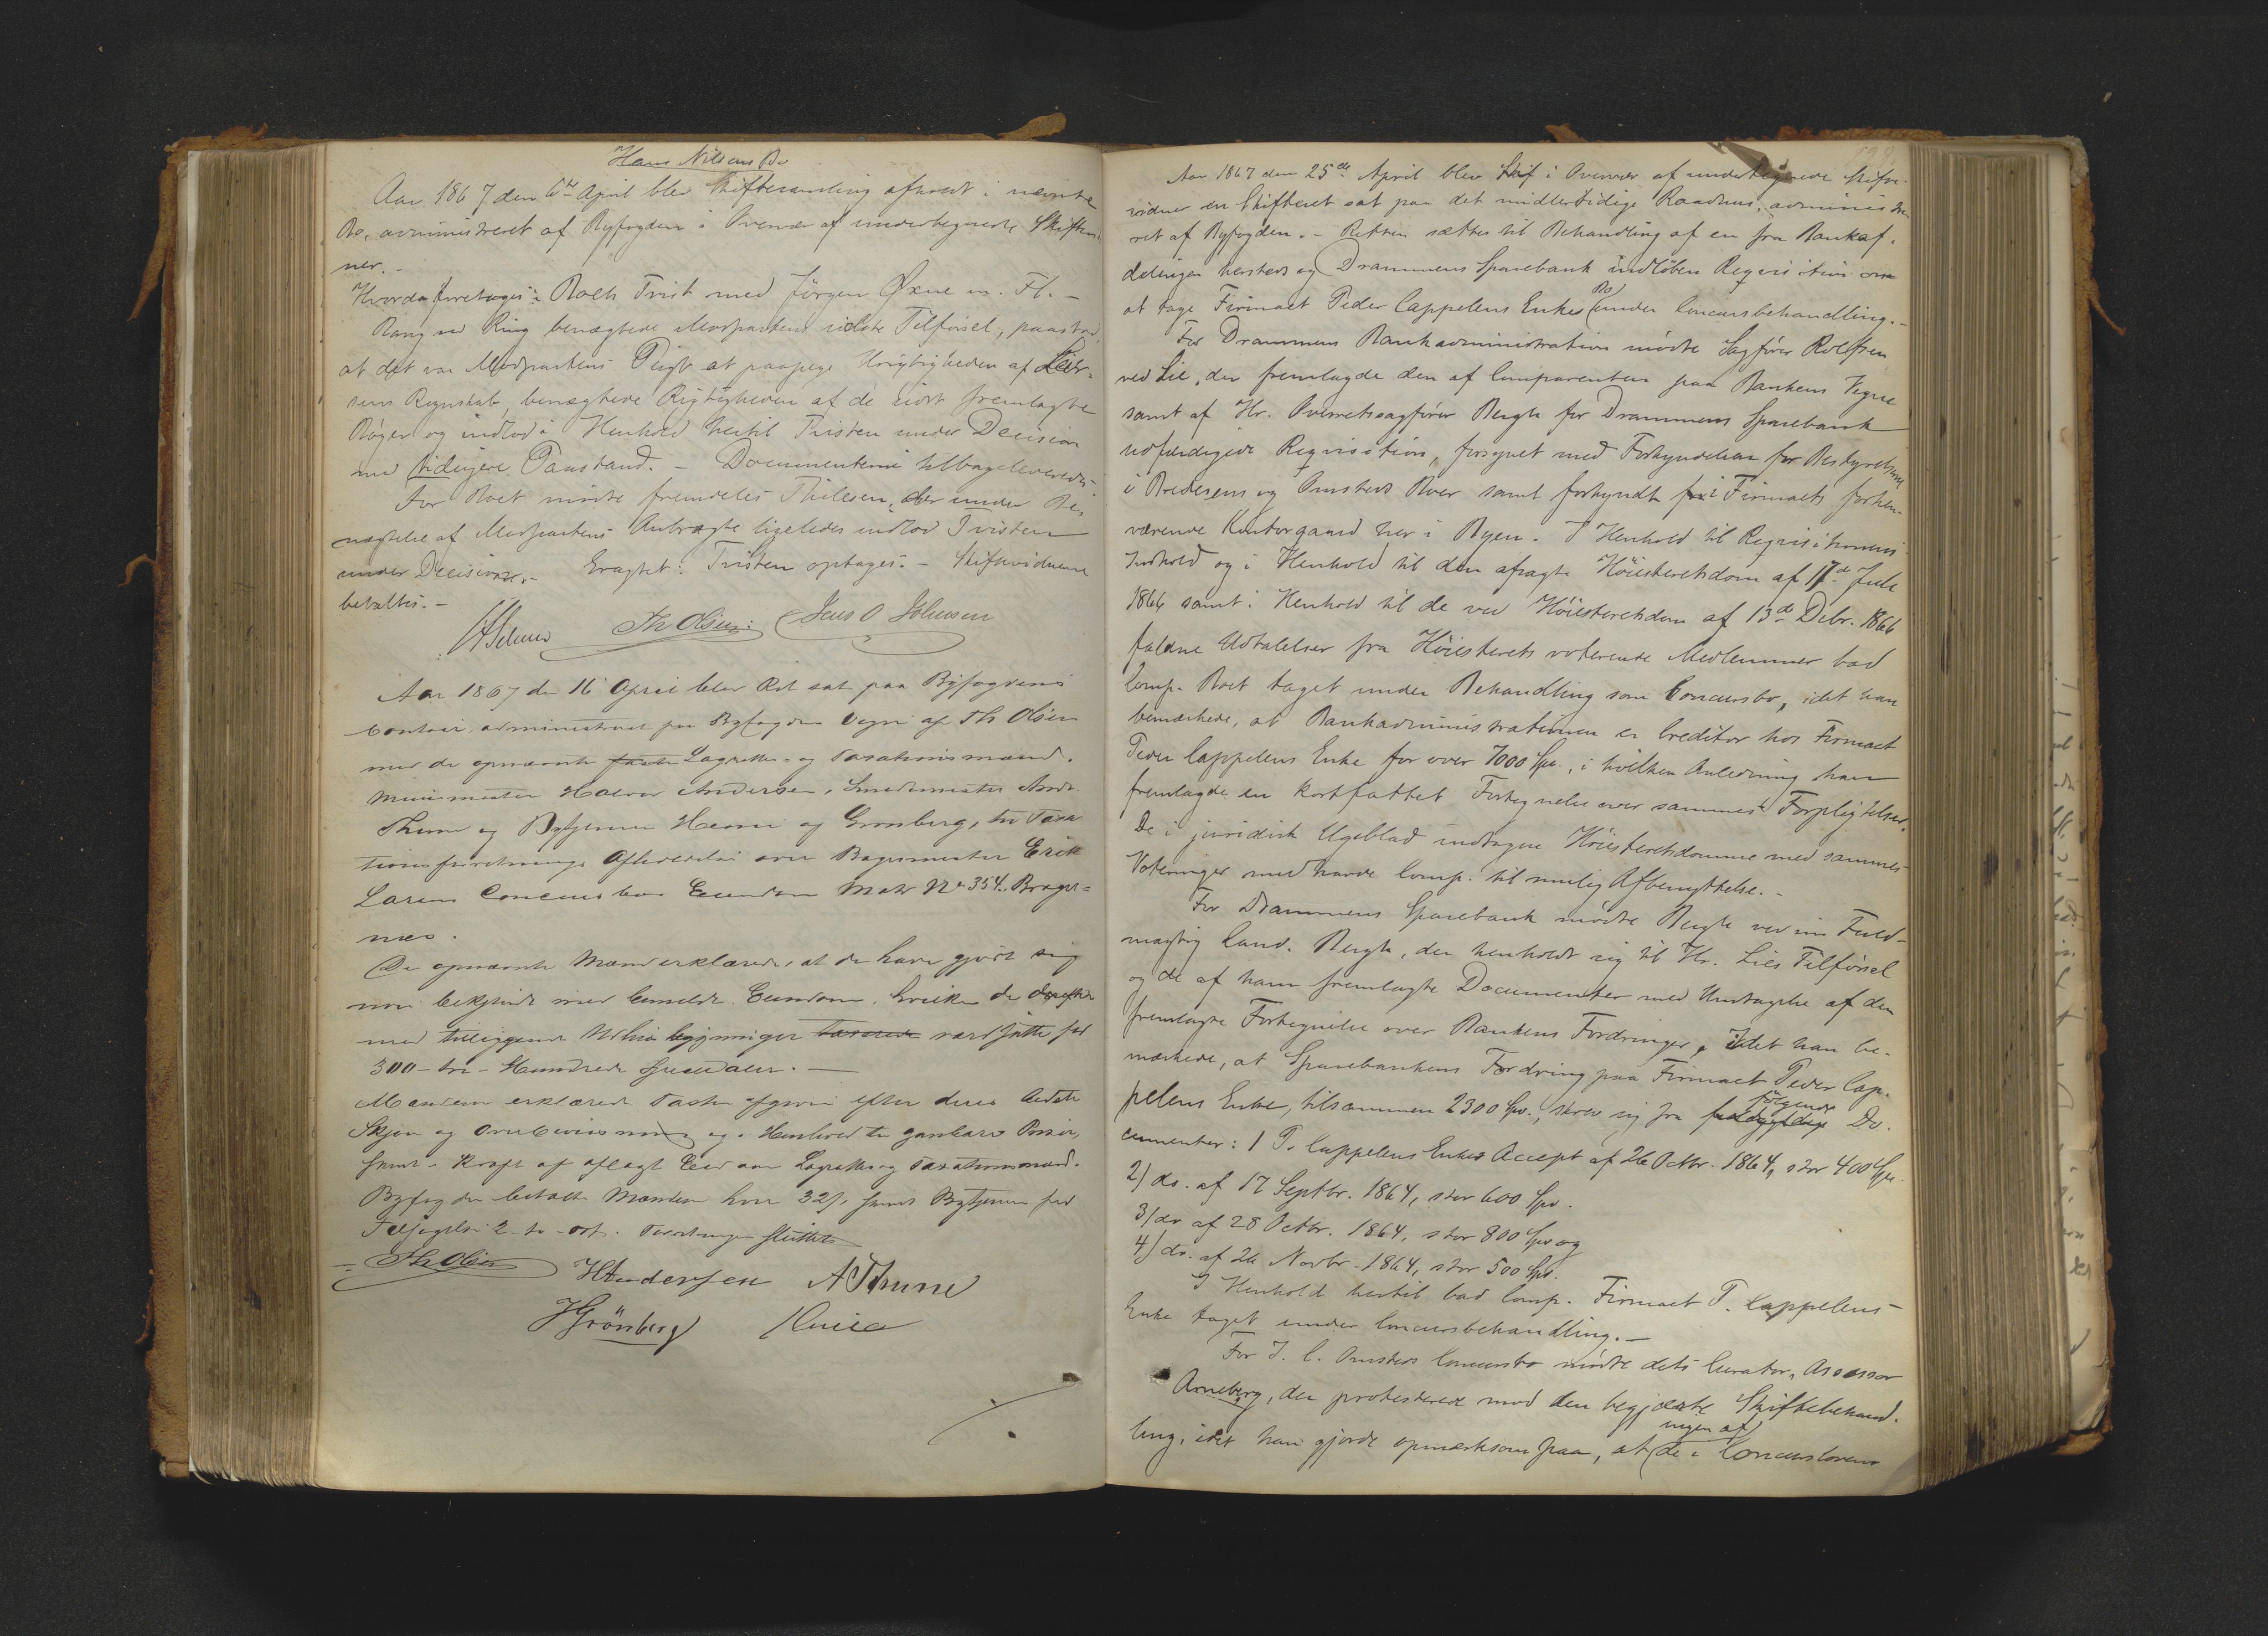 Hans Nilsens Bo
Aar 1867 den 6te April blev Skiftesamling afholdt i nævnte
Bo, administreret af Byfogden i Overvær af undertegnede Skiftevid-
ner. -
Hvorda foretoges: Boets Tvist med Jørgen Øxne m. Fl. -
Bang ved Ring benægtede Modpartens sidste Tilførsel, paastod,
at det var Modpartens Pligt at paapege Urigtigheden af
sens Regnskab, benægtede Rigtigheden af de sidst fremlagte
Bøger og indlod i Henhold hertil Tvisten under Decision
med tidligere Paastand. - Documenterne tilbageleveredes.
For Boet mødte fremdeles Thilesen, der under Be-
nægtelse af Modpartens Anbragte ligeledes indlod Tvisten
under Decision. - Eragtet: Tvisten optages. - Skiftevidnerne
betaltes. -
Th Olsen Jens O Johnsen
Aar 1867 den 16 April blev Ret sat paa Byfogdens
Contoir, administreret paa Byfogdens Vegne af Th Olsen
med de opnævnte faste Lagrettes- og Taxationsmænd.
Muurmester Halvor Andersen, Smedemester Andr.
Thune og Bytjenere Hennie og Grønberg, til Taxa
tionsforretnings Afholdelse over Bagermester Erik
Larsens Concursboes Eiendom Matr No 354. Brager=
næs.
De opnævnte Mænd erklærede, at de have gjort sig
nøie bekjendt med bemeldte Eiendom, hvilken de derefter
med tilliggende Udhuusbygninger taxerede værdsatte for
300 - tre - Hundrede Speciedaler. -
Mændene erklærede Taxten afgiven efter deres bedste
Skjøn og Overbeviisning og i Henhold til gangbare Priser,
samt i Kraft af aflagt Eed som Lagrettes og Taxationsmænd.
Byfogden betalte Mændene hver 32 s, samt Bytjenerne for
Tilsigelse 2 - to - ort. Forretningen sluttet
Th Olsen HAndersen AThune
HGrönberg
Aar 1867 den 25de April blev Skif i Overvær af undertegnede Skifte-
vidner en Skifteret sat paa det midlertidige Raadhus, administre
ret af Byfogden. - Retten sættes til Behandling af en fra Bankaf-
delingen hersteds og Drammens Sparebank indløben Reqvisition om
at tage Firmaet Peder Cappelens Enkes Bo under Concursbehandling. -
For Drammens Bankadministration mødte Sagfører Roelfsen
ved Lie, der fremlagde den af Comparenten paa Bankens Vegne
samt af Hr. Overretssagfører Bergh for Drammens Sparebank
udfærdigede Reqvisition, forsynet med Forkyndelse for Bestyrelserne
i Bredesens og Omsteds Boer samt forkyndt i Firmaets forhen-
værende Kontorgaard her i Byen. I Henhold til Reqvisitionens
Indhold og i Henhold til den afsagte Høiesteretsdom af 17de Juli
1866 samt i Henhold til de ved Høiesteretsdom af 13de Debr. 1866
faldne Udtalelser fra Høiesterets voterende Medlemmer bad
Comp. Boet taget under Behandling som Concursbo, idet han
bemærkede, at Bankadministrationen er Creditor hos Firmaet
Peder Cappelens Enke for over 7000 Spd., i hvilken Anledning han
fremlagde en kortfattet Fortegnelse over sammes Forpligtelser.
De i juridisk Ugeblad indtagne Høiesteretsdomme med sammes
Voteringer medhavde Comp. til mulig Afbenyttelse. -
For Drammens Sparebank mødte Bergh ved sin Fuld-
mægtig Cand. Bergh, der henholdt sig til Hr. Lies Tilførsel
og de af ham fremlagte Documenter med Undtagelse af den
fremlagte Fortegnelse over Bankens Fordringer, idet han be-
mærkede, at Sparebankens Fordring paa Firmaet Peder Cap-
pelens Enke, tilsammen 2300 Spd., skrev sig fra følgende Do-
cumenter: 1 P. Cappelens Enkes Accept af 26 Octbr. 1864, stor 400 Spd.
2) do. af 17 Septbr. 1864, stor 600 Spd.
3) do af 28 Octbr. 1864, stor 800 Spd og
4) do. af 26 Novbr. 1864, stor 500 Spd.
I Henhold hertil bad Comp. Firmaet P. Cappelens
Enke taget under Concursbehandling. -
For J. C. Omsteds Concursbo mødte dets Curator, Assessor
Arneberg, der protesterede mod den begjærte Skiftebehand-
ling, idet han gjorde opmærksom paa, at ingen af de i Concurslovens